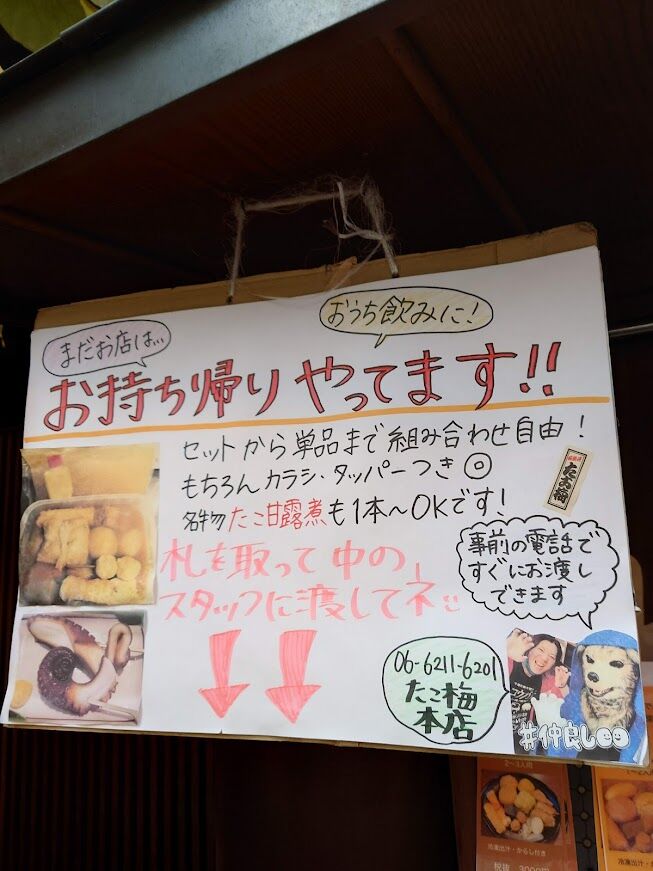 まだお店は…
おうち飲みに！
お持ち帰りやってます!!
セットから単品まで組み合わせ自由！
もちろんカラシ・タッパーつき◎
名物たこ甘露煮も1本〜OKです！
たこ梅
札を取って中の
スタッフに渡してネ
事前の電話で
すぐにお渡し
できます
06-6211-6201
たこ梅
本店
#仲良し
2〜3人用
冷凍出汁・からし付き
税抜 3000円
1〜2人用
冷凍出汁